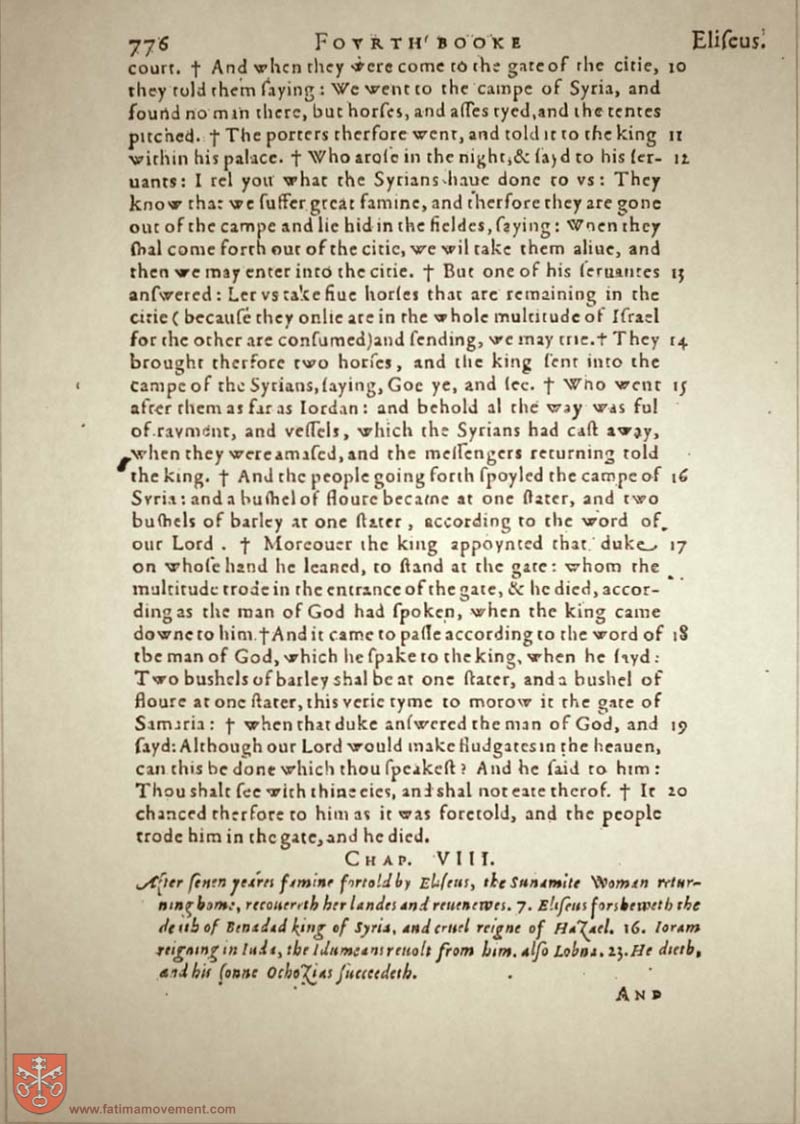 776 FOVRTH BOOKE Eliſeus.
court. † And when they were come to the gate of the citie, 10
they told them ſaying: We went to the campe of Syria, and
found no man there, but horſes, and aſſes tyed, and the tentes
pitched. † The porters therfore went, and told it to the king 11
within his palace. † Who aroſe in the night, & ſayd to his ſer- 12
uants: I tel you what the Syrians haue done to vs: They
know that we ſuffer great famine, and therfore they are gone
out of the campe and lie hid in the fieldes, ſaying: When they
ſhal come forth out of the citie, we wil take them aliue, and
then we may enter into the citie. † But one of his ſeruantes 13
anſwered: Let vs take fiue horſes that are remaining in the
citie (becauſe they onlie are in the whole multitude of Iſrael
for the other are conſumed) and ſending, we may trie. † They 14
brought therfore two horſes, and the king ſent into the
campe of the Syrians, ſaying, Goe ye, and ſee. † Who went 15
after them as far as Iordan: and behold al the way was ful
of rayment, and veſſels, which the Syrians had caſt away,
when they were amaſed, and the meſſengers returning told
the king. † And the people going forth ſpoyled the campe of 16
Syria: and a buſhel of floure became at one ſtater, and two
buſhels of barley at one ſtater, according to the word of
our Lord. † Moreouer the king appoynted that duke 17
on whoſe hand he leaned, to ſtand at the gate: whom the
multitude trode in the entrance of the gate, & he died, accor-
ding as the man of God had ſpoken, when the king came
downe to him. † And it came to paſſe according to the word of 18
the man of God, which he ſpake to the king, when he ſayd:
Two bushels of barley shal be at one ſtater, and a bushel of
floure at one ſtater, this verie tyme to morow in the gate of
Samaria: † when that duke anſwered the man of God, and 19
ſayd: Although our Lord would make fludgates in the heauen,
can this be done which thou ſpeakeſt? And he ſaid to him:
Thou shalt ſee with thine eies, and shal not eate therof. † It 20
chanced therfore to him as it was foretold, and the people
trode him in the gate, and he died.
CHAP. VIII.
After ſeuen yeares famine fortold by Eliſeus, the Sunamite Woman retur-
ning home, recouereth her landes and reuenewes. 7. Eliſeus forsheweth the
death of Benadad king of Syria, and cruel reigne of Hazael. 16. Ioram
reigning in Iuda, the Idumeans reuolt from him. alſo Lobna. 23. He dieth,
and his ſonne Ochozias ſucceedeth.
AND
www.fatimamovement.com